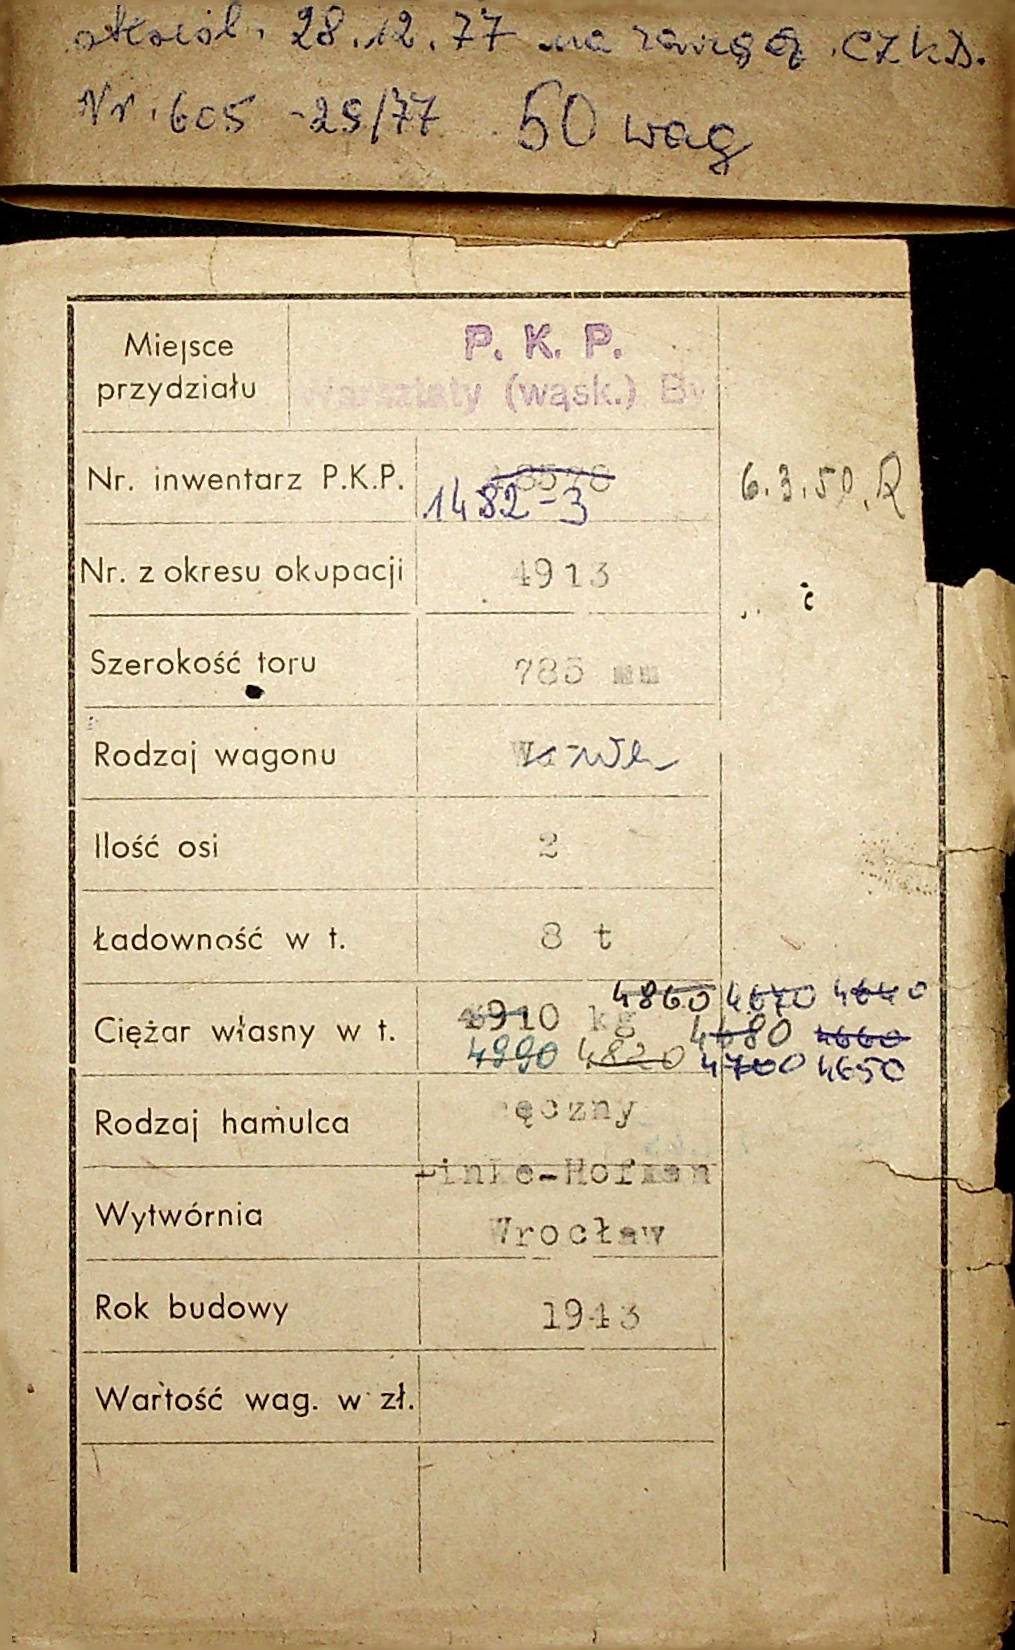 28.12.77 na CZKD.
Nr. 605 -29/77 50 wag
Miejsce przydziału P. K. P.
Warsztaty (wąsk.) By
Nr. inwentarz P.K.P. 1482-3 6.3.50.
Nr. z okresu okupacji 4913
Szerokość toru 785 mm
Rodzaj wagonu
Ilość osi 2
Ładowność w t. 8 t
4860 4670 4640
Ciężar własny w t. 4910 kg 4680 4660
4990 4820 4700 4650
Rodzaj hamulca ęczny
Linke-Hofman
Wytwórnia Wrocław
Rok budowy 1943
Wartość wag. w zł.